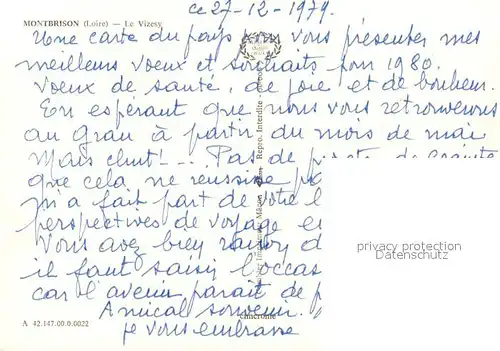 ce 27-12-1979.
MONTBRISON (Loire) — Le Vizesy
Une carte du pays vous présenter mes
meilleurs voeux et souhaits pour 1980.
Voeux de santé, de joie et de bonheur.
En espérant que nous vous retrouverons
au grau à partir du mois de mai
Mais chut!... Pas de de crainte
que cela ne réussisse
m'a fait part de votre
perspectives de voyage
Vous avez bien raison
il faut saisir l'occas
car l'avenir paraît de
Amical souvenir.
je vous embrasse
Repro. Interdite
Mâcon
privacy protection
A 42.147.00.0.0022